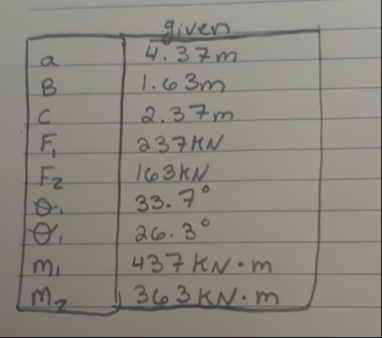 given
a 4.37m
B 1.63m
C 2.37m
F₁ 237KN
F₂ 163KN
θ₁ 33.7°
θ₁ 26.3°
m₁ 437 KN·m
M₂ 363KN·m